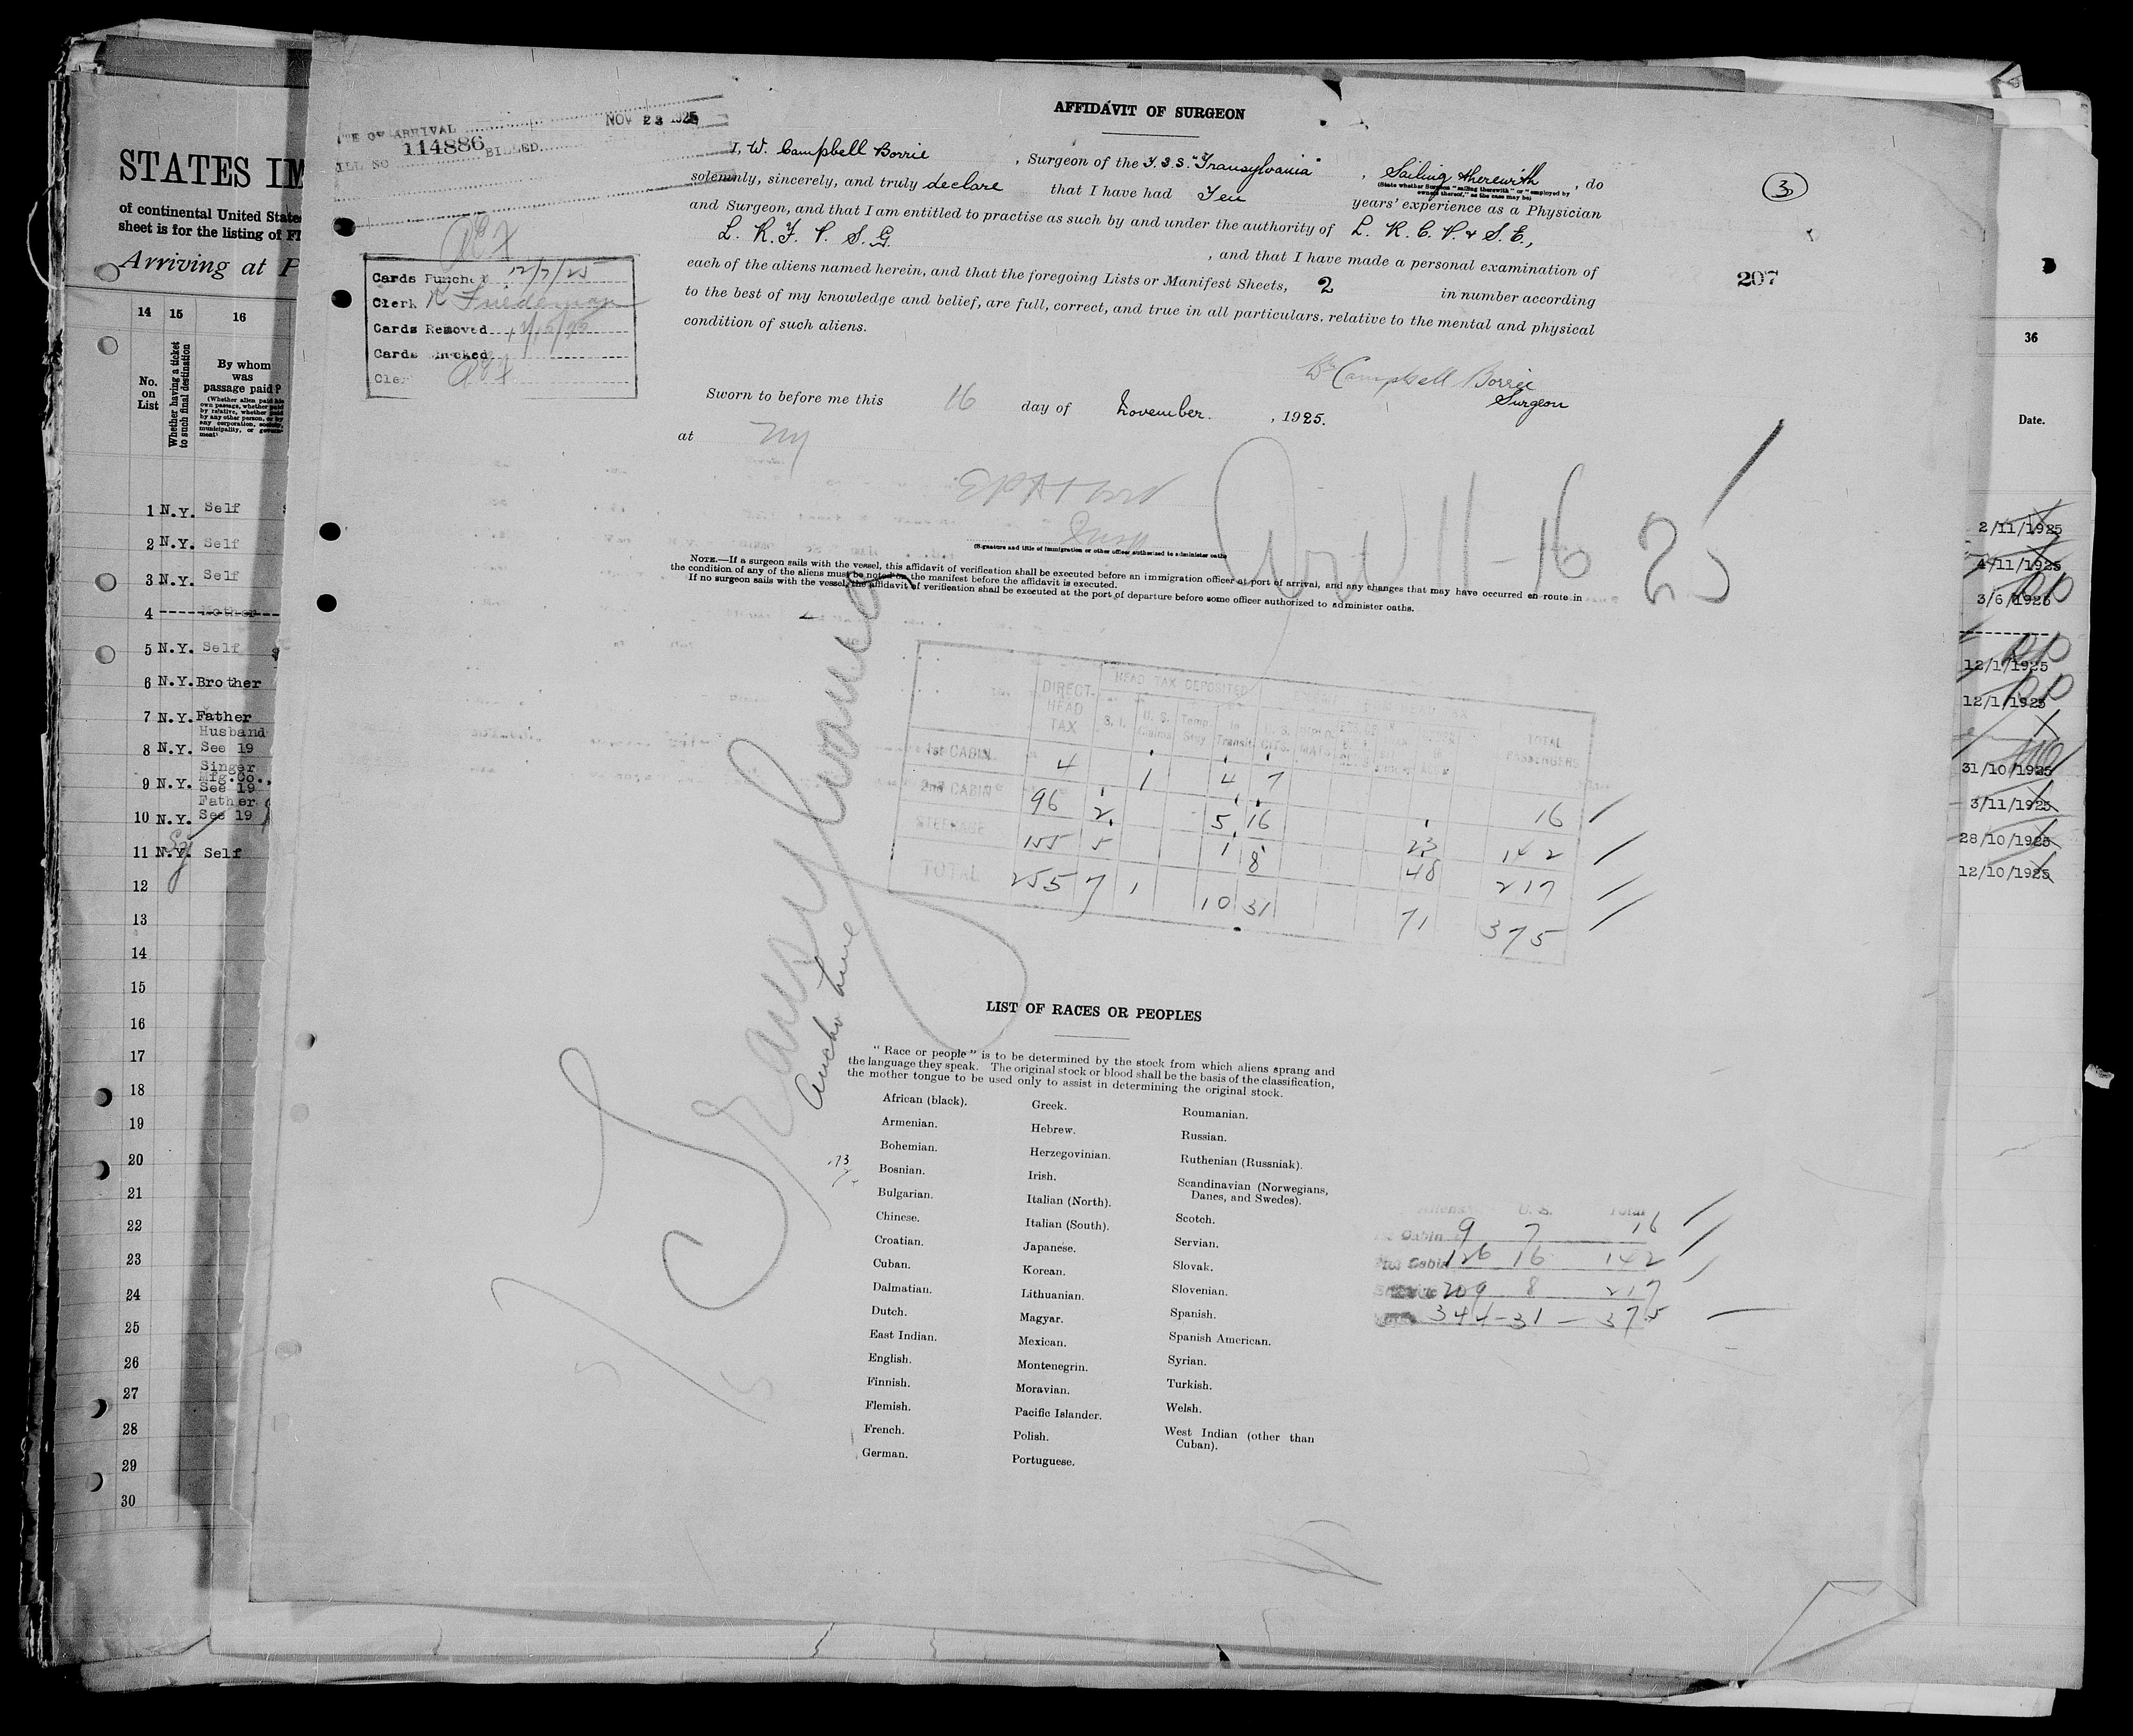 STATES IM
of continental United States
sheet is for the listing of FI
Arriving at P
14 15 16
No. on List
Whether having a ticket to such final destination
By whom was passage paid?
(Whether alien paid his own passage, whether paid by relative, whether paid by any other person, or by any corporation, society, municipality, or government)
1 N.Y. Self
2 N.Y. Self
3 N.Y. Self
4 ---- Mother ---
5 N.Y. Self $
6 N.Y. Brother
7 N.Y. Father
Husband
8 N.Y. See 19
Singer
Mfg.Co.,
9 N.Y. See 19
Father
10 N.Y. See 19
11 N.Y. Self
12
13
14
15
16
17
18
19
20
21
22
23
24
25
26
27
28
29
30
E OF ARRIVAL NOV 23 1925
ILL NO 114886 BILLED
Cards Punched 12/7/25
Clerk R Friedeman
Cards Removed
Cards Checked
Cler
AFFIDAVIT OF SURGEON
I, W. Campbell Borrie, Surgeon of the T.S.S. "Transylvania", Sailing therewith, do
(State whether Surgeon "sailing therewith" or "employed by owners thereof," as the case may be)
solemnly, sincerely, and truly declare that I have had Ten years' experience as a Physician
and Surgeon, and that I am entitled to practise as such by and under the authority of L. R. C. P. & S. E.,
L. R. F. P. S. G. , and that I have made a personal examination of
each of the aliens named herein, and that the foregoing Lists or Manifest Sheets, 2 in number according
to the best of my knowledge and belief, are full, correct, and true in all particulars, relative to the mental and physical
condition of such aliens.
Wm Campbell Borrie
Surgeon
Sworn to before me this 16 day of November, 1925.
at NY
(Signature and title of immigration or other officer authorized to administer oaths
NOTE.—If a surgeon sails with the vessel, this affidavit of verification shall be executed before an immigration officer at port of arrival, and any changes that may have occurred en route in
the condition of any of the aliens must be noted on the manifest before the affidavit is executed.
If no surgeon sails with the vessel, the affidavit of verification shall be executed at the port of departure before some officer authorized to administer oaths.
3
207
11-16 25
Transylvania
Anchor Line
DIRECT HEAD TAX HEAD TAX DEPOSITED TOTAL PASSENGERS
S. I. U. S. Claims Temp. Stay In Transit
1st CABIN 4 1 4 7 16
2nd CABIN 96 2 5 16 23 142
STEERAGE 155 5 1 8 48 217
TOTAL 255 7 1 10 31 71 375
LIST OF RACES OR PEOPLES
"Race or people" is to be determined by the stock from which aliens sprang and
the language they speak. The original stock or blood shall be the basis of the classification,
the mother tongue to be used only to assist in determining the original stock.
African (black).
Armenian.
Bohemian.
Bosnian.
Bulgarian.
Chinese.
Croatian.
Cuban.
Dalmatian.
Dutch.
East Indian.
English.
Finnish.
Flemish.
French.
German.
Greek.
Hebrew.
Herzegovinian.
Irish.
Italian (North).
Italian (South).
Japanese.
Korean.
Lithuanian.
Magyar.
Mexican.
Montenegrin.
Moravian.
Pacific Islander.
Polish.
Portuguese.
Roumanian.
Russian.
Ruthenian (Russniak).
Scandinavian (Norwegians,
Danes, and Swedes).
Scotch.
Servian.
Slovak.
Slovenian.
Spanish.
Spanish American.
Syrian.
Turkish.
Welsh.
West Indian (other than
Cuban).
Aliens U. S. Total
Cabin 9 7 16
Cabin 126 16 142
209 8 217
344 - 31 - 375
36
Date.
2/11/1925
4/11/1925
3/6/1925
12/1/1925
12/1/1925
31/10/1925
3/11/1925
28/10/1925
12/10/1925